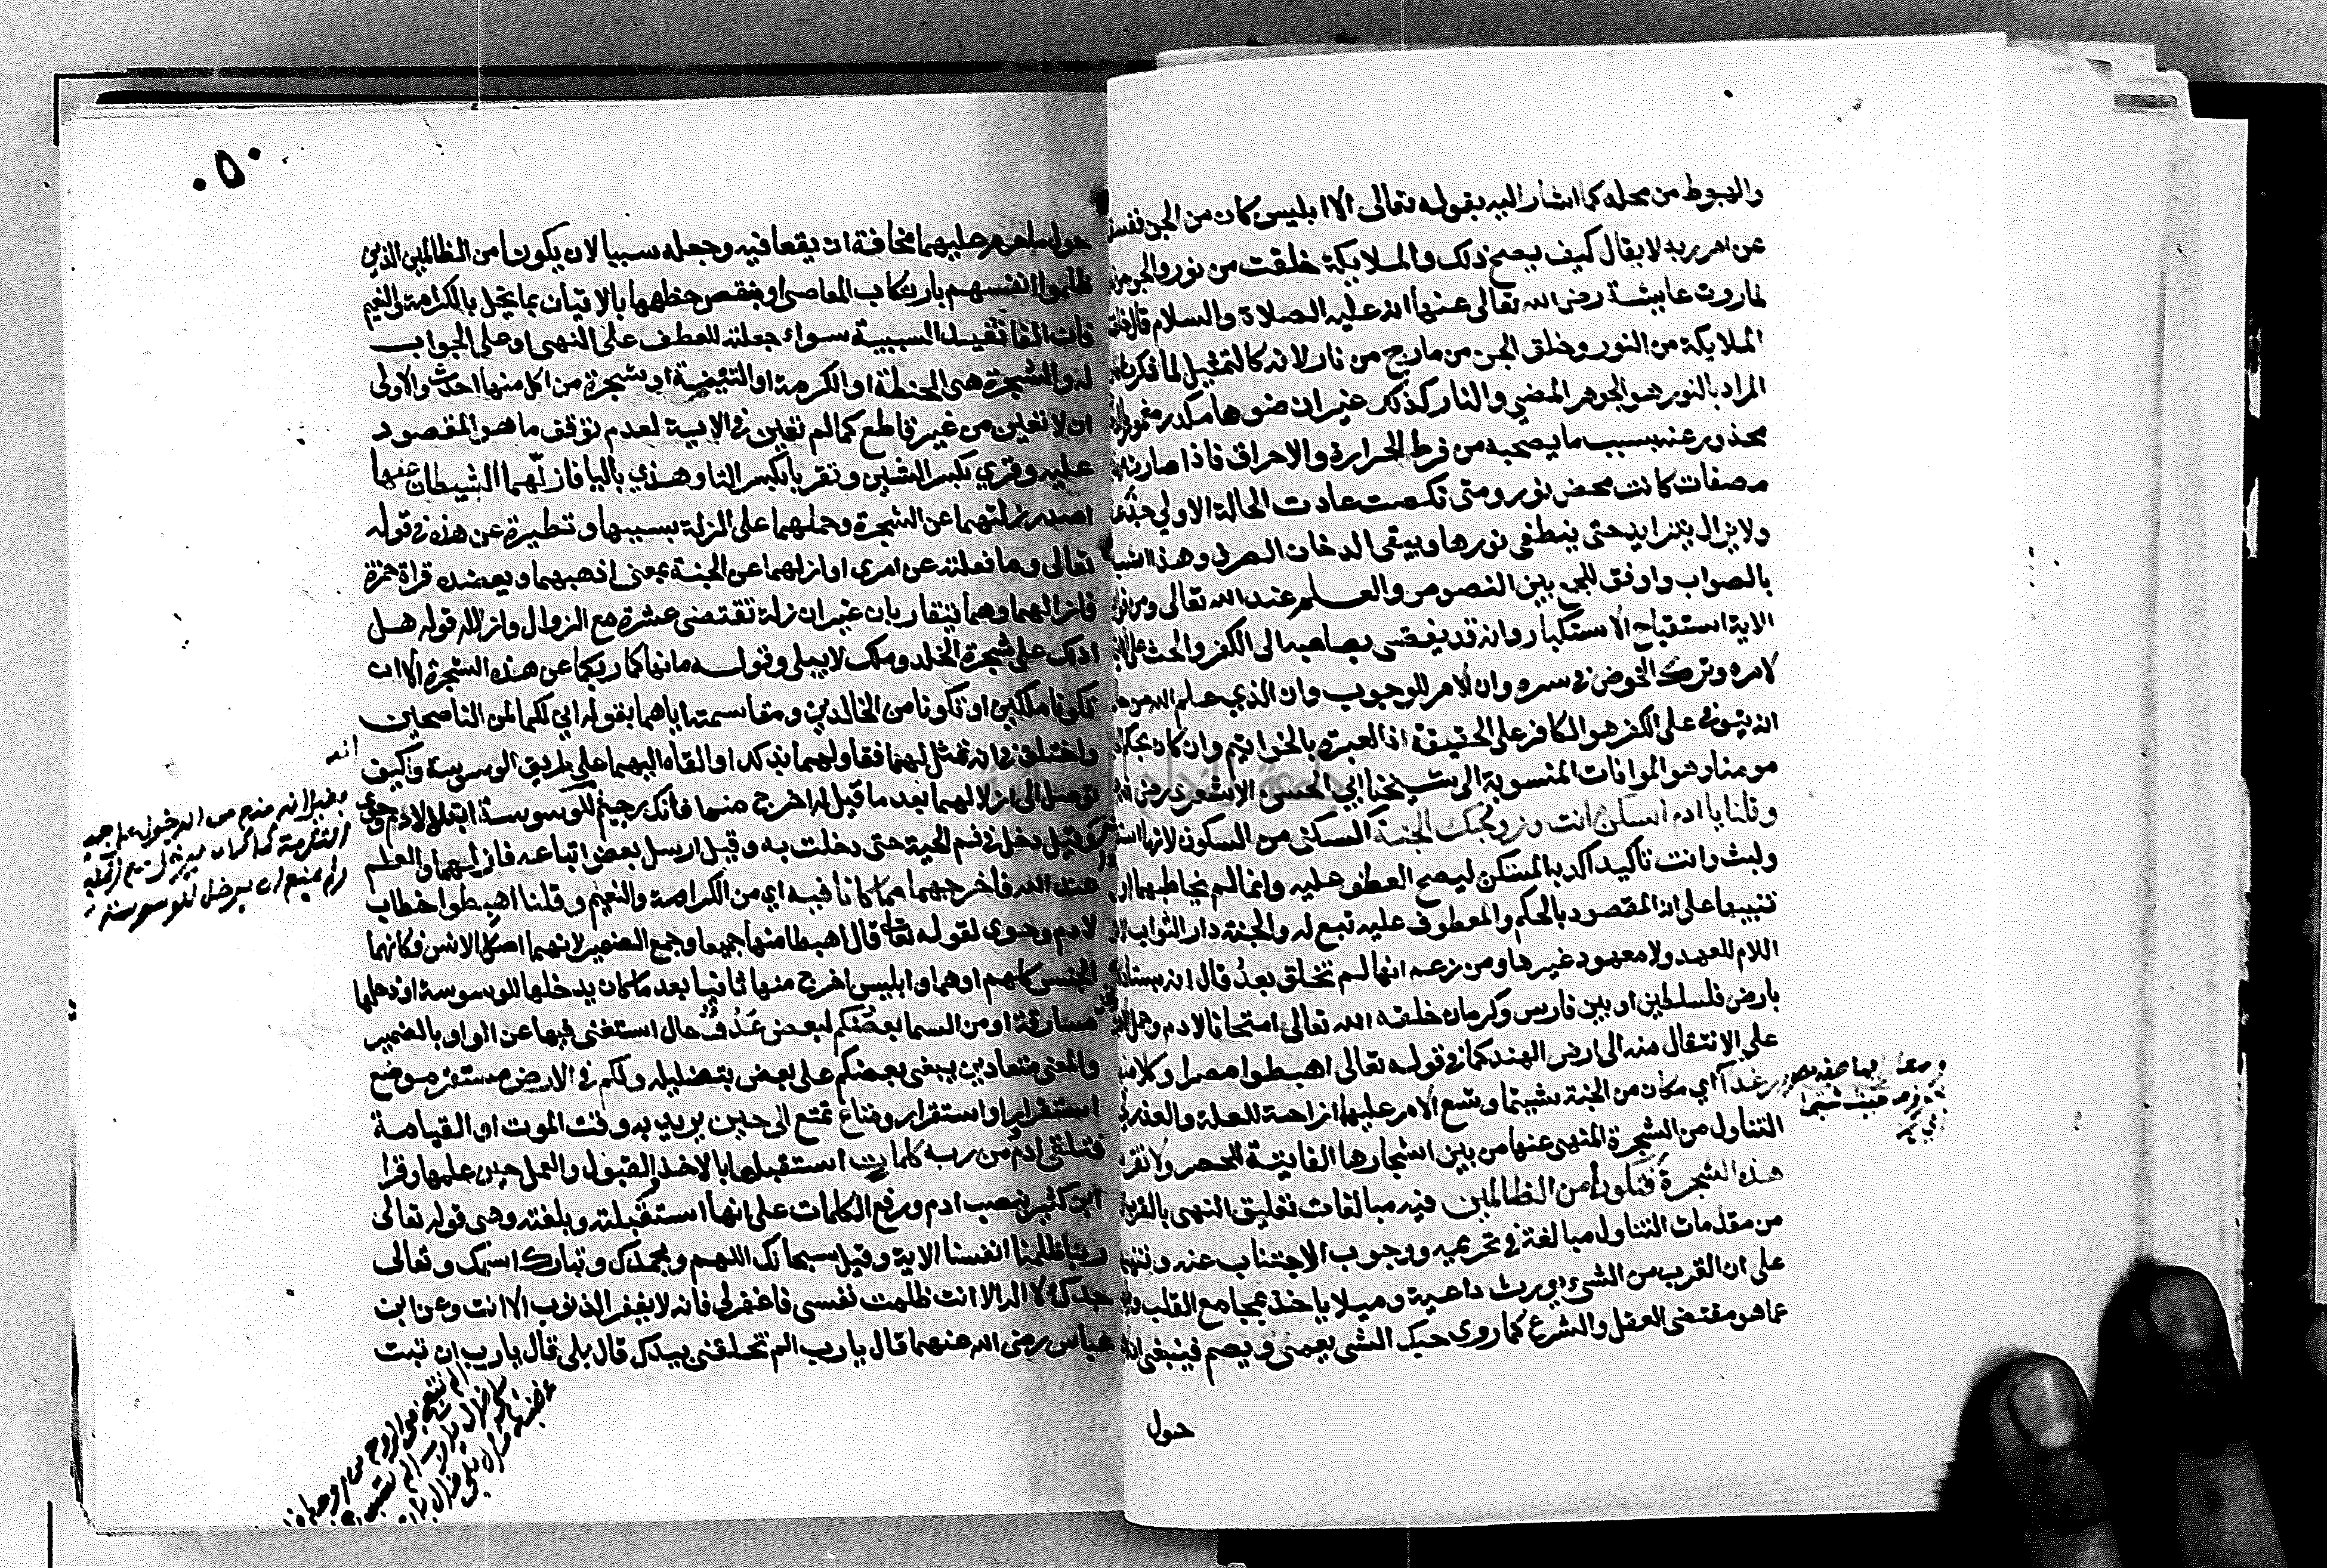 والهبوط من محله كما اشار اليه بقوله تعالى الا ابليس كان من الجن ففسق
عن امر ربه لا يقال كيف يصح ذلك والملايكة خلقت من نور والجن من
لما روت عايشة رضى الله تعالى عنها انه عليه الصلاة والسلام قال خلقت
الملايكة من النور وخلق الجن من مارج من نار لانه كالتمثيل لما ذكرنا
المراد بالنور هو الجوهر المضي والنار كذلك غير ان ضوها مكدر مغمور
محذور عنه بسبب ما يصحبه من فرط الحرارة والاحراق فاذا صارت
مصفات كانت محض نور ومتى نكصت عادت الحالة الاولي جذعة
ولا يزال يتزايد حتى ينطفي نورها ويبقى الدخان الصرف وهذا اشبه
بالصواب واوفق للجمع بين النصوص والعلم عند الله تعالى ومن فوايد
الاية استقباح الاستكبار وانه قد يفضى بصاحبه الى الكفر والحث على
لامره وترك الخوض في سره وان الامر للوجوب وان الذي علم الله من
انه يتوفى على الكفر هو الكافر على الحقيقة اذ العبرة بالخواتيم وان كان بحكم
مومنا وهو الموافات المنسوبة الى شيخنا ابي الحسن الاشعري رضى الله
وقلنا يا ادم اسكن انت وزوجك الجنة السكنى من السكون لانها
ولبث وانت تأكيد اكد به المستكن ليصح العطف عليه وانما لم يخاطبهما اولا
تنبيها على انه المقصود بالحكم والمعطوف عليه تبع له والجنة دار الثواب
اللام للعهد ولا معهود غيرها ومن زعم انها لم تخلق بعد قال انه بستان
بارض فلسطين او بين فارس وكرمان خلقه الله تعالى امتحانا لادم وحمل
على الانتقال منه الى ارض الهند كما في قوله تعالى اهبطوا مصرا وكلا منها
رغدا اي مكان من الجنة شيتما وسع الامر عليهما ازاحة للعلة والعذر في
التناول من الشجرة المنهى عنها من بين اشجارها الفايتة للحصر ولا تقربا
هذه الشجرة فتكونا من الظالمين فيه مبالغات تعليق النهى بالقرب
من مقدمات التناول مبالغة في تحريمه ووجوب الاجتناب عنه وتنبيه
على ان القرب من الشيء يورث داعية وميلا ياخذ بمجامع القلب
عما هو مقتضى العقل والشرع كما روى حبك الشى يعمى ويصم فينبغى
حول
٥٠
حول ما حرم عليهما مخافة ان يقعا فيه وجعله سببا لان يكونا من الظالمين الذين
ظلموا انفسهم بارتكاب المعاصى او بنقص حظهما بالاتيان بما يخل بالكرامة والنعيم
فان الفا تفيد السببية سواء جعلته للعطف على النهى او على الجواب
له والشجرة هى الحنطة او الكرمة او التينة او شجرة من اكل منها احدث والاولى
ان لا تعين من غير قاطع كما لم تعين فى الاية لعدم توقف ما هو المقصود
عليه وقري بكسر الشين وتقربا بكسر التا وهذي باليا فازلهما الشيطان عنها
اصدر زلتهما عن الشجرة وحملهما على الزلة بسببها ونظيرة عن هذه في قوله
تعالى وما فعلته عن امرى او ازلهما عن الجنة بمعنى اذهبهما ويعضده قراة حمزة
فازالهما وهما يتقاربان غير ان زلة تقتضى عثرة مع الزوال وازلاله قوله هل
ادلك على شجرة الخلد وملك لا يبلى وقوله ما نهاكما ربكما عن هذه الشجرة الا ان
تكونا ملكين او تكونا من الخالدين ومقاسمته اياهما بقوله اني لكما لمن الناصحين
واختلف في انه تمثل لهما فقاولهما بذلك او القاه اليهما على طريق الوسوسة وكيف
توصل الى ازلالهما بعد ما قيل له اخرج منها فانك رجيم
وقيل دخل في فم الحية حتى دخلت به وقيل ارسل بعض اتباعه فازلهما والعلم
عند الله فاخرجهما مما كانا فيه اي من الكرامة والنعيم وقلنا اهبطوا خطاب
لادم وحوى لقوله تعالى قال اهبطا منها جميعا وجمع الضمير لانهما اصلا الانس فكانهما
الجنس كلهم او هما وابليس اخرج منها ثانيا بعد ما كان يدخلها للوسوسة او دخلها
مسارقة او من السما بعضكم لبعض عدو حال استغنى فيها عن الواو بالضمير
والمعنى متعادين يبغى بعضكم على بعض بتضليله ولكم في الارض مستقر موضع
استقرار او استقرار ومتاع تمتع الى حين يريد به وقت الموت او القيامة
فتلقى ادم من ربه كلمات استقبلها بالاخذ والقبول والعمل حين علمها وقرا
ابن كثير بنصب ادم ورفع الكلمات على انها استقبلته وبلغته وهى قوله تعالى
ربنا ظلمنا انفسنا الاية وقيل سبحانك اللهم وبحمدك وتبارك اسمك وتعالى
جدك لا اله الا انت ظلمت نفسى فاغفر لي فانه لا يغفر الذنوب الا انت وعن ابن
عباس رضى الله عنهما قال يا رب الم تخلقنى بيدك قال بلى قال يا رب ان تبت